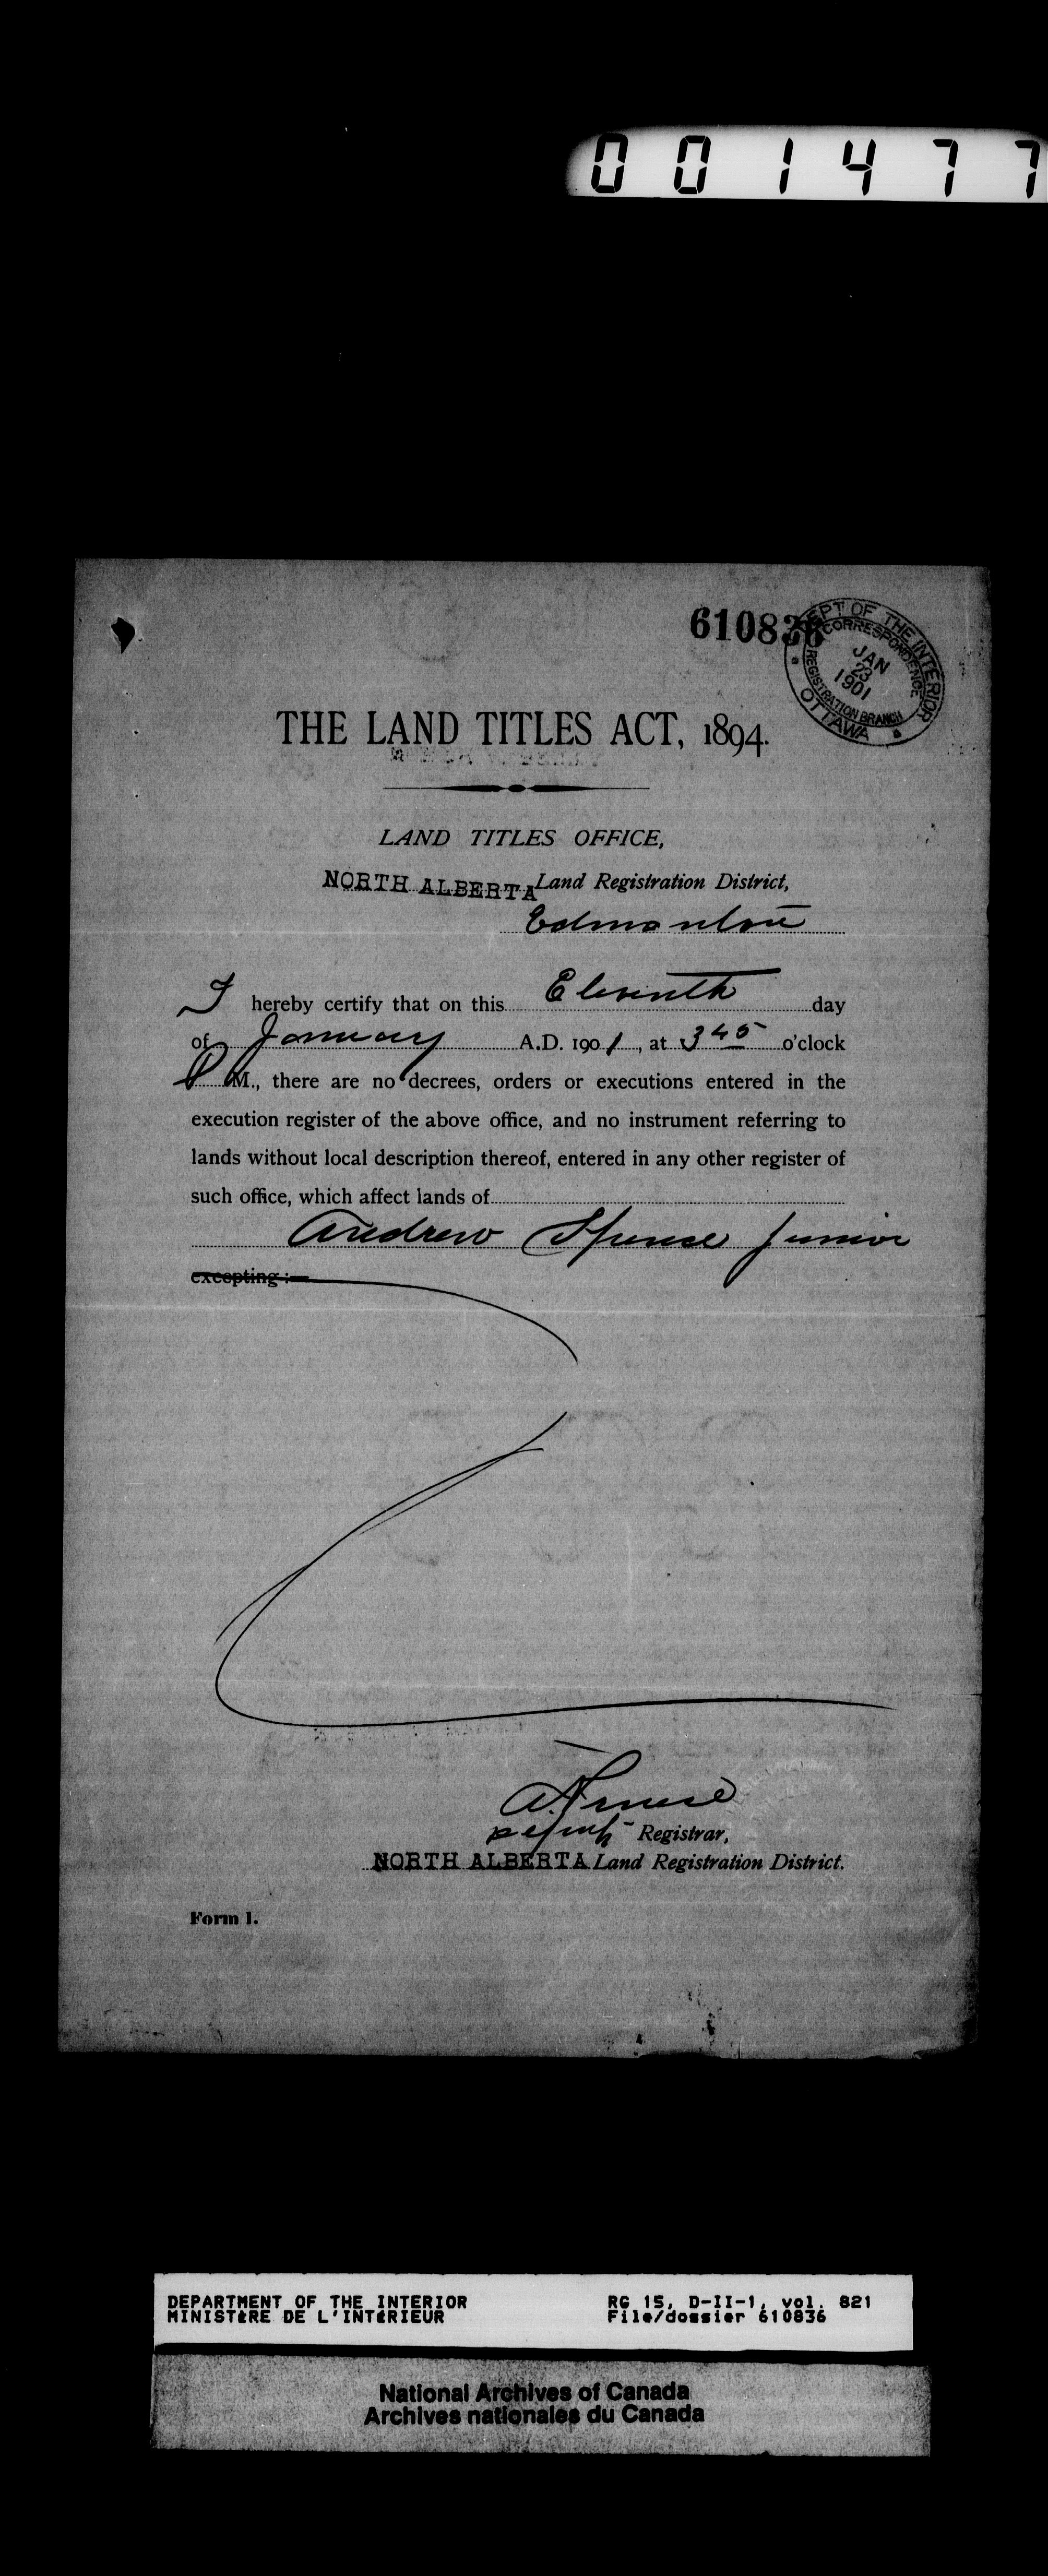 001477
610836
DEPT OF THE INTERIOR
CORRESPONDENCE
JAN
23
1901
REGISTRATION BRANCH
OTTAWA
THE LAND TITLES ACT, 1894.
LAND TITLES OFFICE,
NORTH ALBERTA Land Registration District,
Edmonton
I hereby certify that on this Eleventh day
of January A.D. 1901, at 3 45 o'clock
P M., there are no decrees, orders or executions entered in the
execution register of the above office, and no instrument referring to
lands without local description thereof, entered in any other register of
such office, which affect lands of
Andrew Spence Junior
excepting:—
Deputy Registrar,
NORTH ALBERTA Land Registration District.
Form 1.
DEPARTMENT OF THE INTERIOR RG 15, D-II-1, vol. 821
MINISTÈRE DE L'INTÉRIEUR File/dossier 610836
National Archives of Canada
Archives nationales du Canada